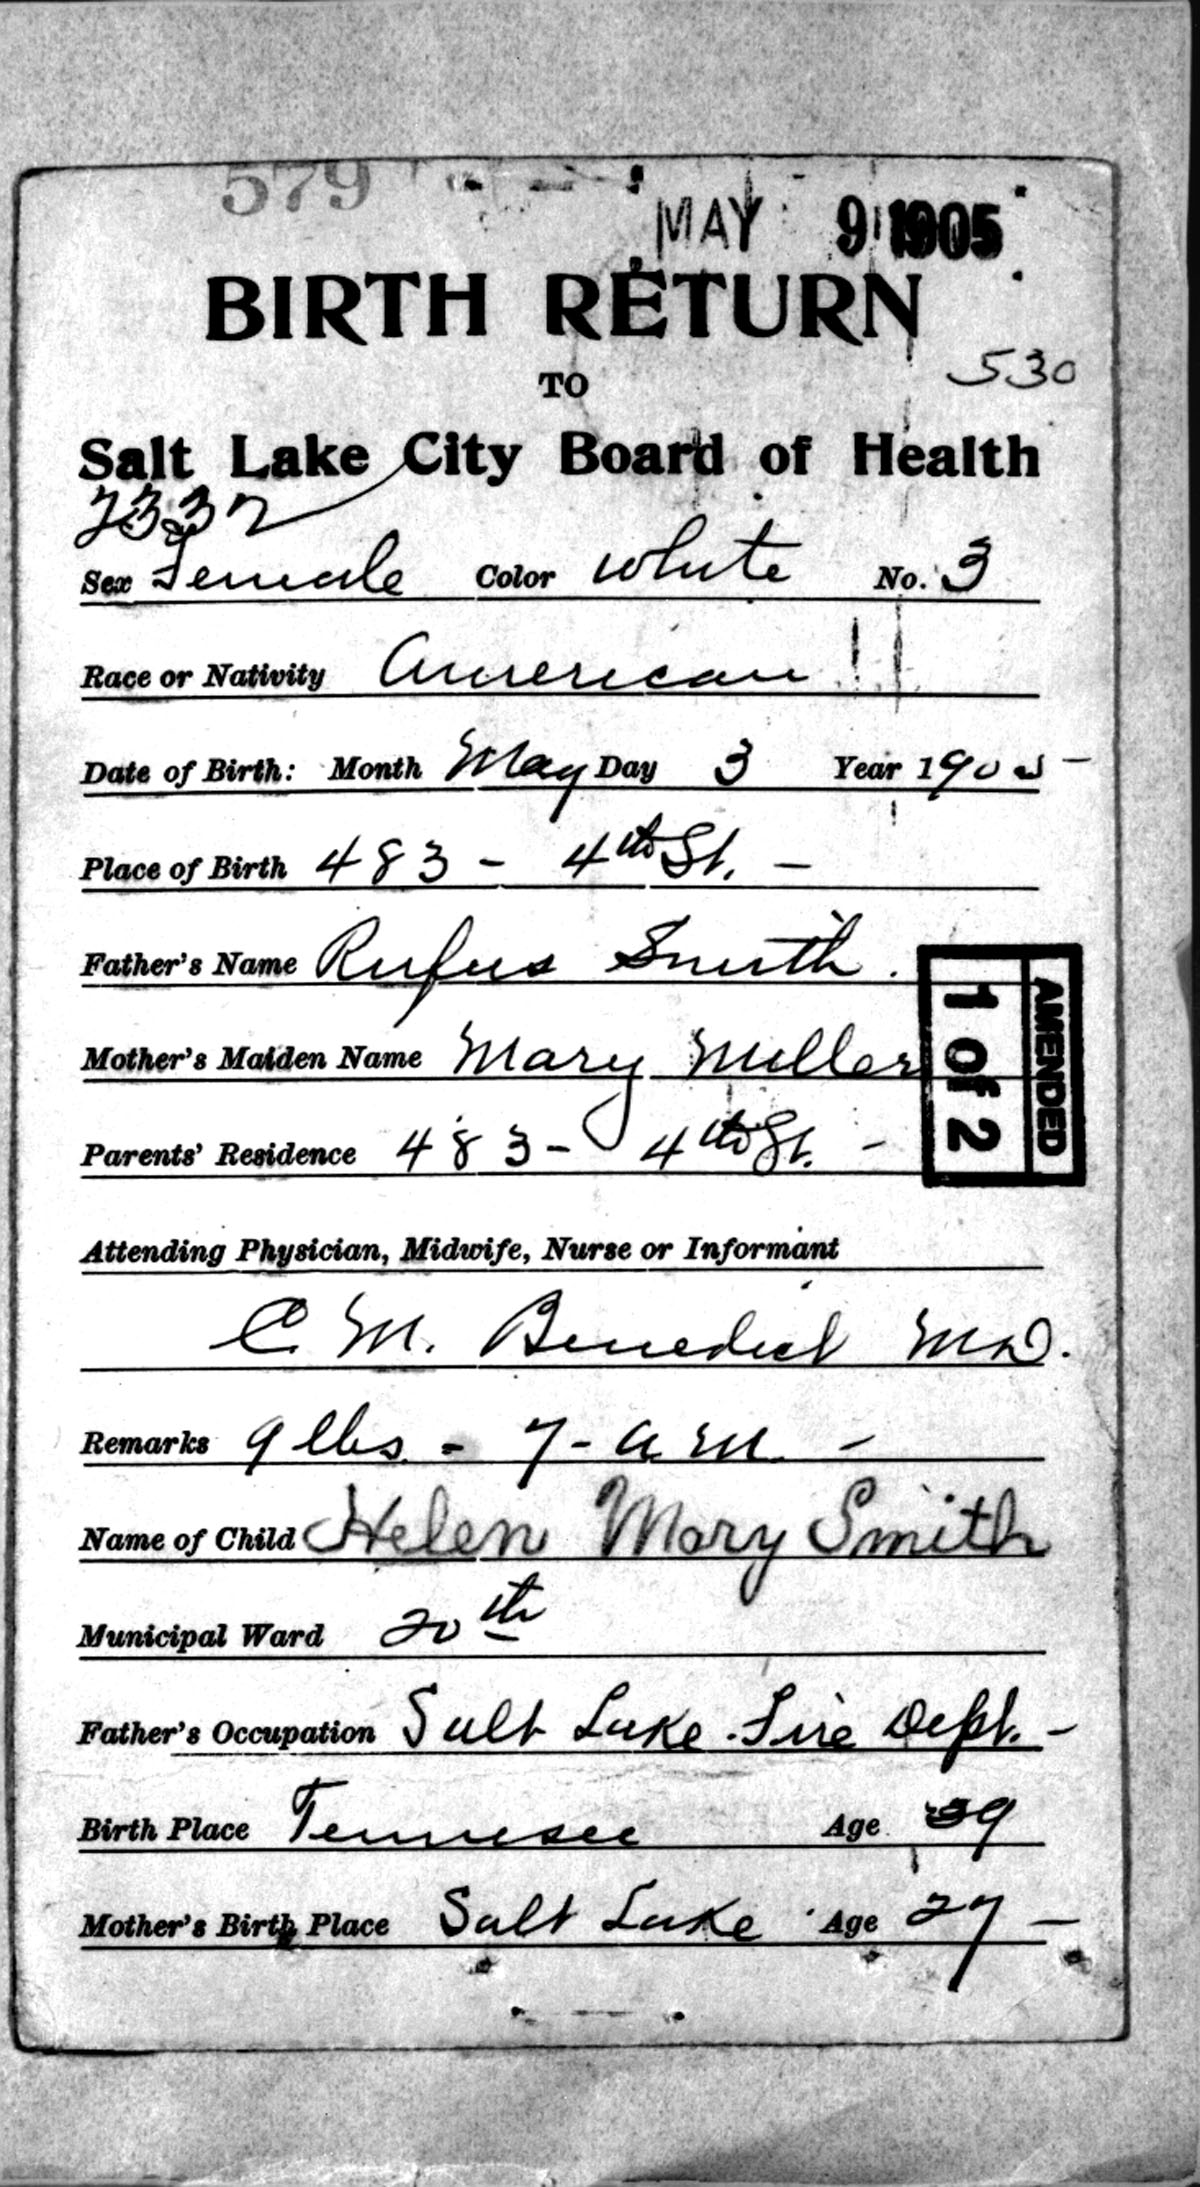 579
MAY 9 1905
BIRTH RETURN
530
TO
Salt Lake City Board of Health
2332
Sex Female Color White No. 3
Race or Nativity American
Date of Birth: Month May Day 3 Year 1905
Place of Birth 483 - 4th St. -
Father's Name Rufus Smith.
Mother's Maiden Name Mary Miller
Parents' Residence 483 - 4th St. -
AMENDED
1 of 2
Attending Physician, Midwife, Nurse or Informant
C. M. Benedict MD.
Remarks 9 lbs. - 7 - a.m. -
Name of Child Helen Mary Smith
Municipal Ward 20th
Father's Occupation Salt Lake Fire Dept. -
Birth Place Tennesee Age 39
Mother's Birth Place Salt Lake Age 27 -